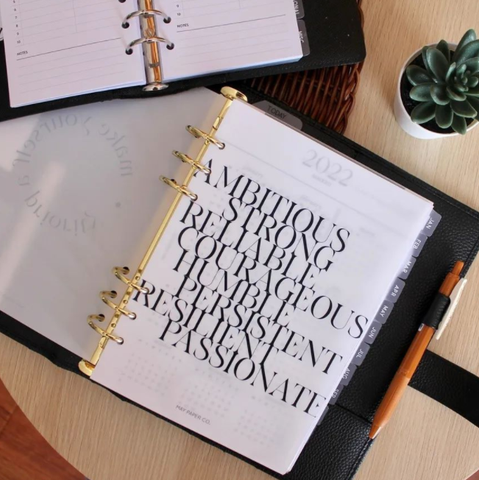 NOTES
TODAY
2022
AMBITIOUS
STRONG
RELIABLE
COURAGEOUS
HUMBLE
PERSISTENT
RESILIENT
PASSIONATE
JAN
FEB
MAR
APR
MAY
JUN
JUL
AUG
make yourself a
priority